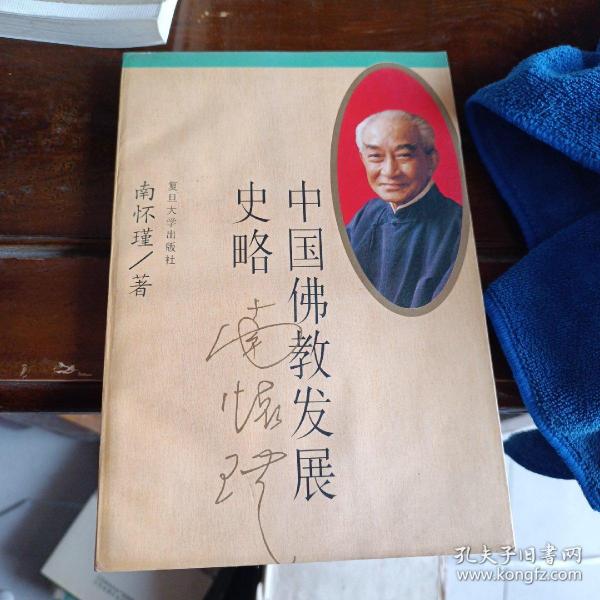 中国佛教发展
史略
南怀瑾
复旦大学出版社
南怀瑾／著
孔夫子旧书网
www.kongfz.com